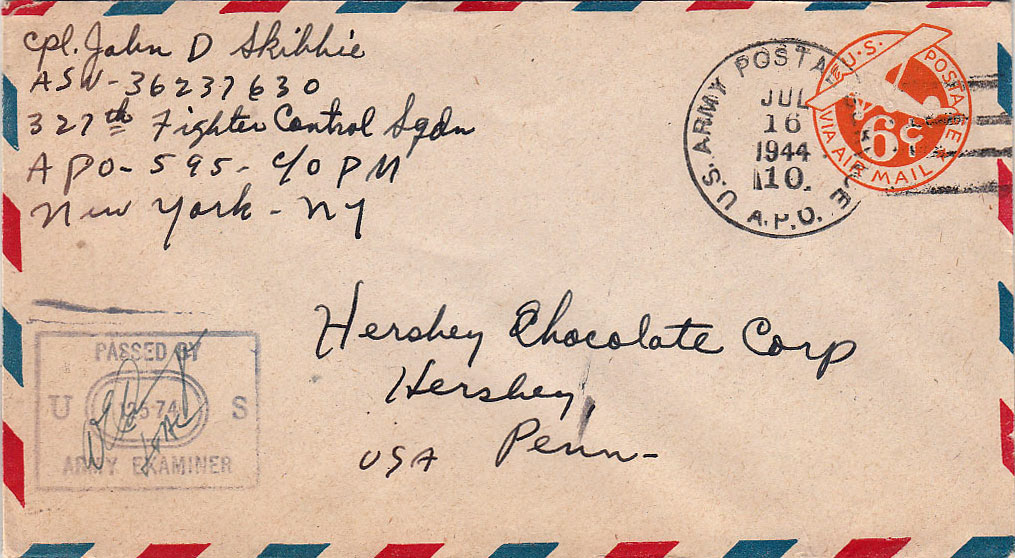 cpl. John D Skibbie
ASN-36237630
327th Fighter Control Sqdn
APO-595-C/O PM
New York-NY
U.S. ARMY POSTAL SERVICE
JUL
16
1944
10
A.P.O.
U.S. POSTAGE
6¢
VIA AIR MAIL
Hershey Chocolate Corp
Hershey,
USA Penn-
PASSED BY
U S
ARMY EXAMINER